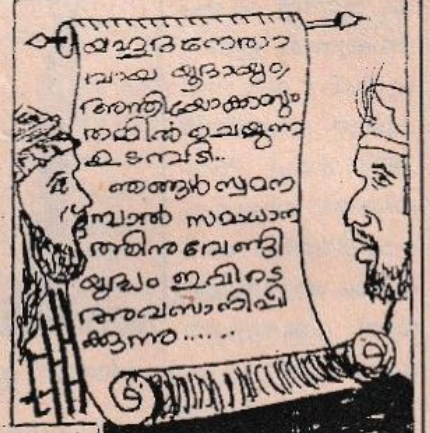 യഹൂദനേതാ
വായ യൂദായും,
അന്തിയോക്കസും
തമ്മിൽ ചെയ്യുന്ന
ഉടമ്പടി..
ഞങ്ങൾ സ്വമന
മ്പാൽ സമാധാന
ത്തിനുവേണ്ടി
യുദ്ധം ഇവിടെ
അവസാനിപ്പി
ക്കുന്നു......